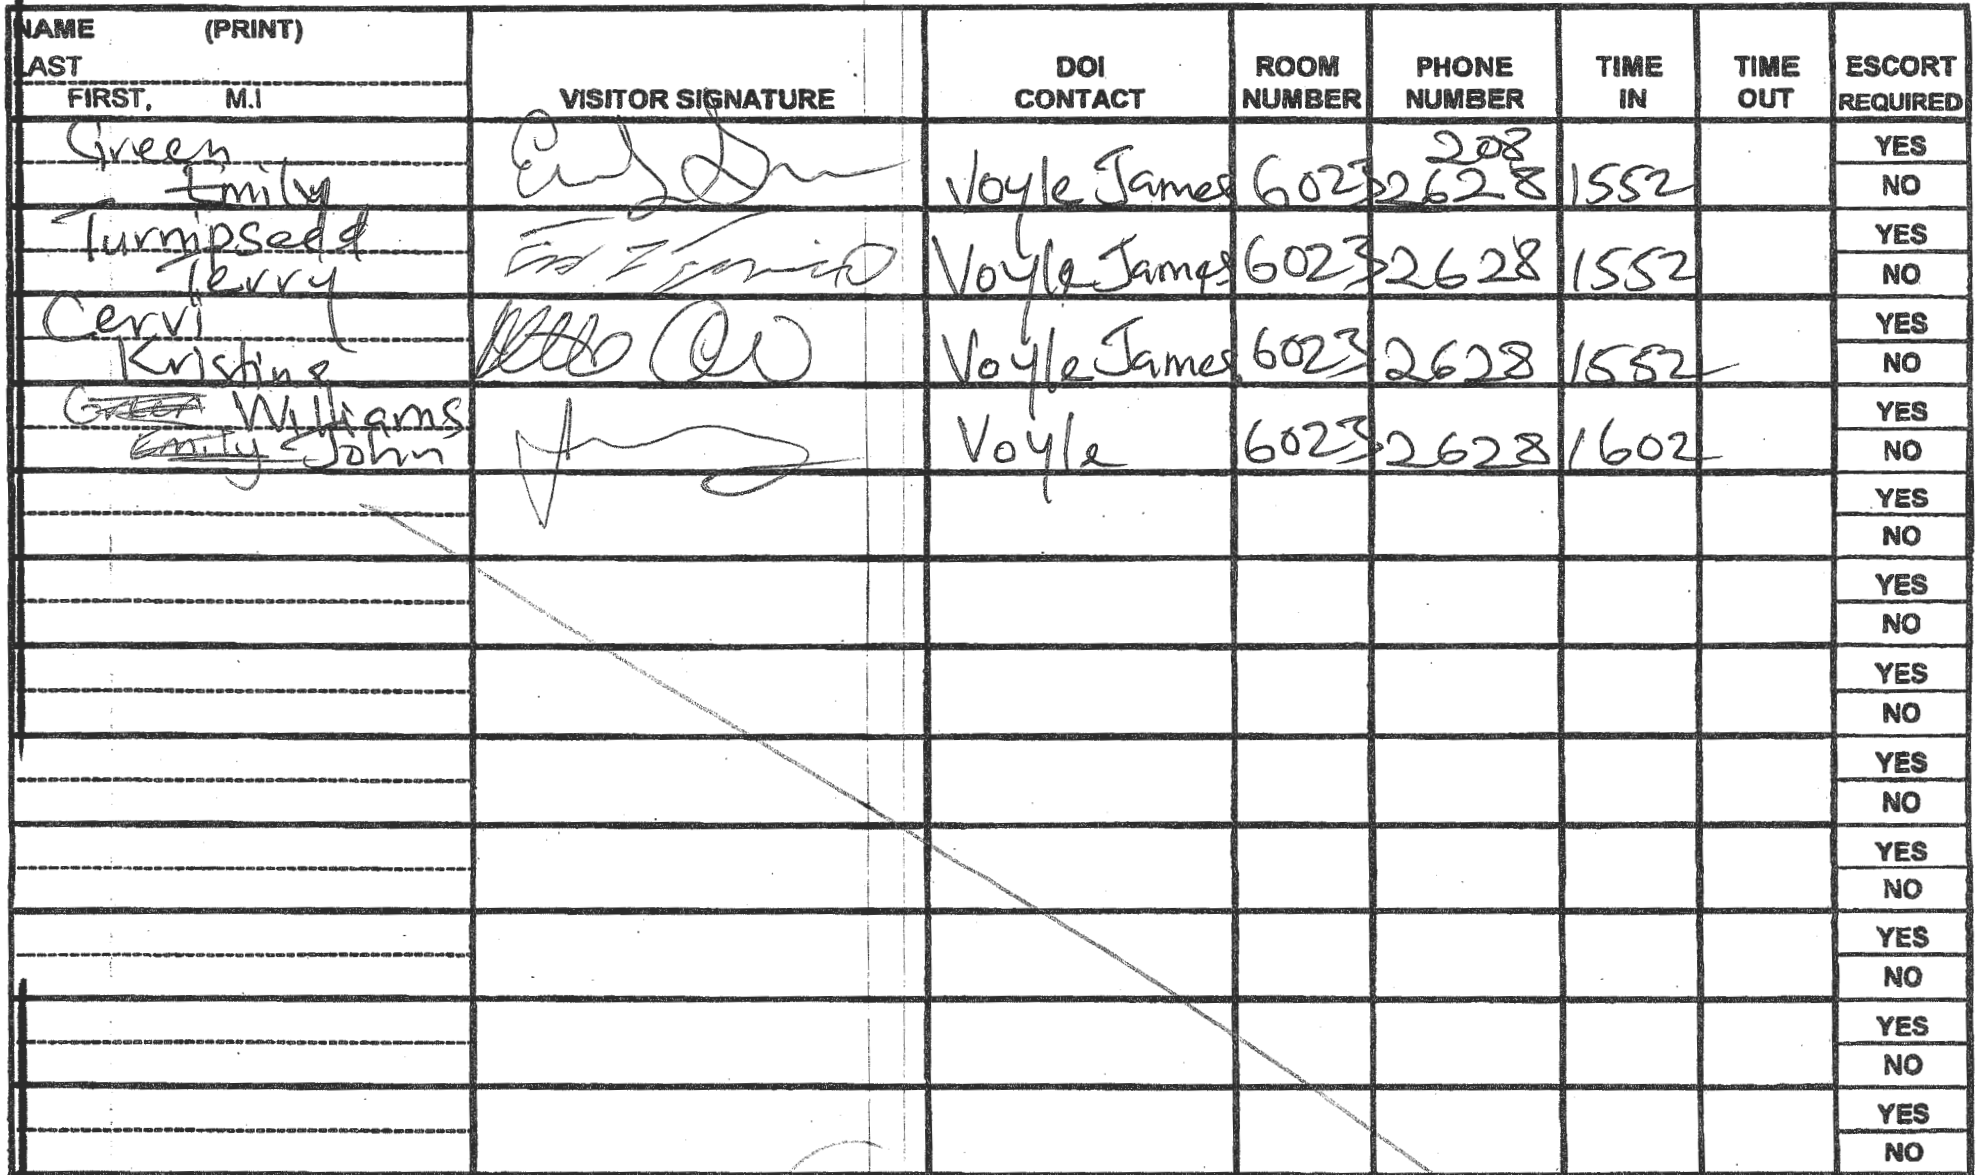 NAME (PRINT)
LAST
FIRST, M.I
VISITOR SIGNATURE
DOI CONTACT
ROOM NUMBER
PHONE NUMBER
TIME IN
TIME OUT
ESCORT REQUIRED
Green
Emily
Voyle James 6023 208 2628 1552 YES NO
Turnipseed
Terry
Voyle James 6023 2628 1552 YES NO
Cervi
Kristine
Voyle James 6023 2628 1552 YES NO
Green Williams
Emily John
Voyle 6023 2628 1602 YES NO
YES
NO
YES
NO
YES
NO
YES
NO
YES
NO
YES
NO
YES
NO
YES
NO